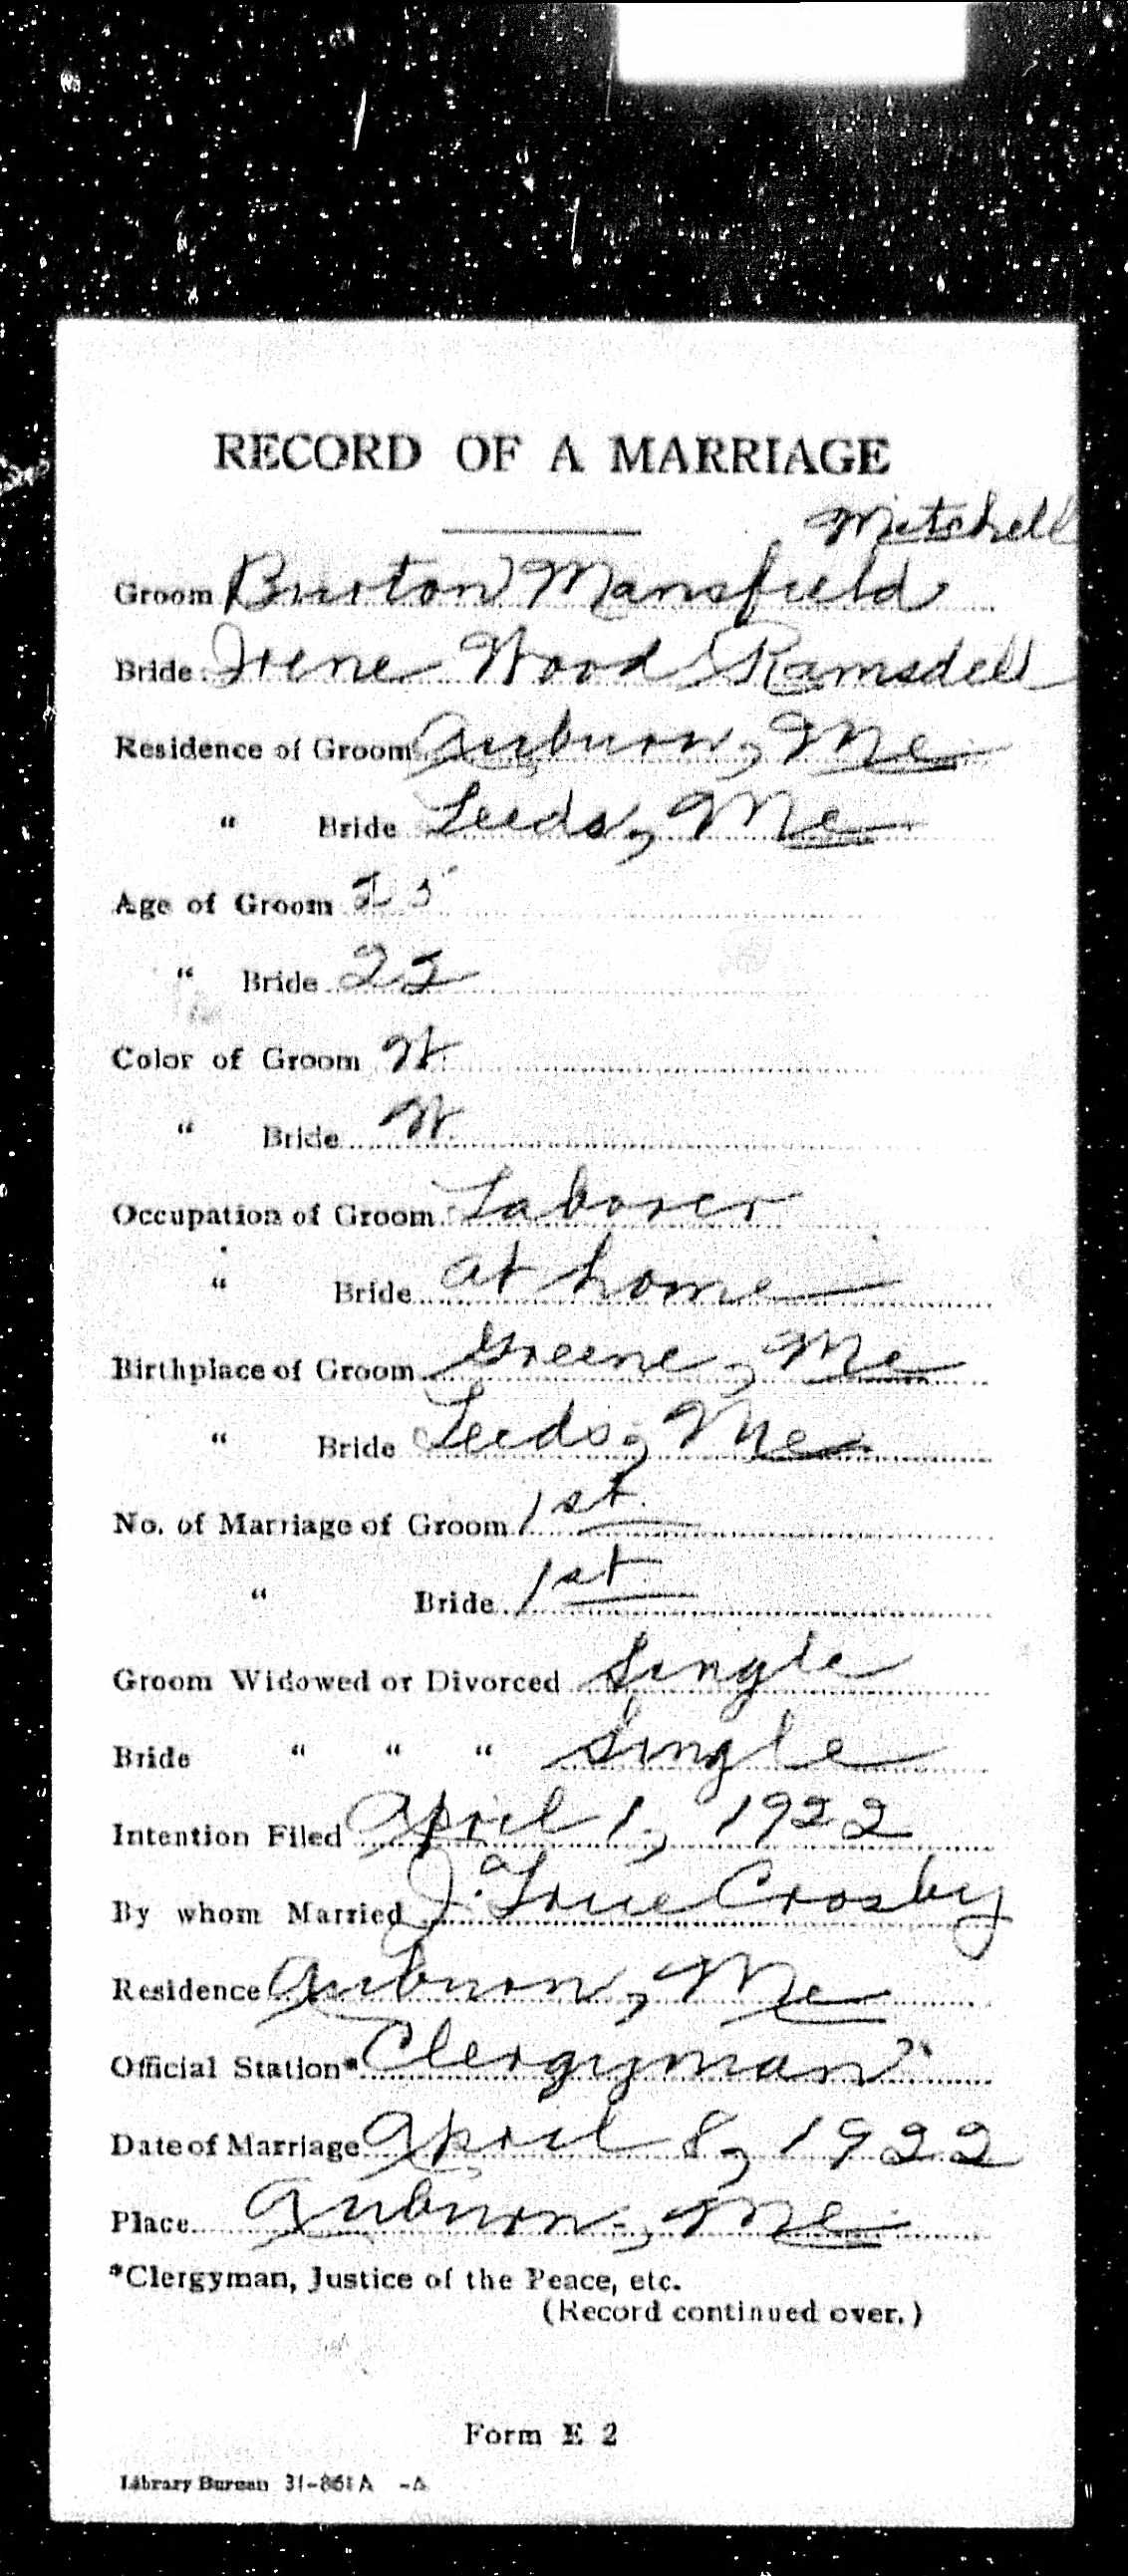 RECORD OF A MARRIAGE
Mitchell
Groom Burton Mansfield
Bride Irene Wood Ramsdell
Residence of Groom Auburn, Me.
" Bride Leeds, Me
Age of Groom 25
" Bride 22
Color of Groom W.
" Bride W.
Occupation of Groom Laborer
" Bride at home
Birthplace of Groom Greene, Me
" Bride Leeds, Me.
No. of Marriage of Groom 1st
" Bride 1st
Groom Widowed or Divorced Single
Bride " " " Single
Intention Filed April 1, 1922
By whom Married J. True Crosby
Residence Auburn, Me
Official Station* Clergyman
Date of Marriage April 8, 1922
Place Auburn, Me.
*Clergyman, Justice of the Peace, etc.
(Record continued over.)
Form E 2
Library Bureau 31-861A -A